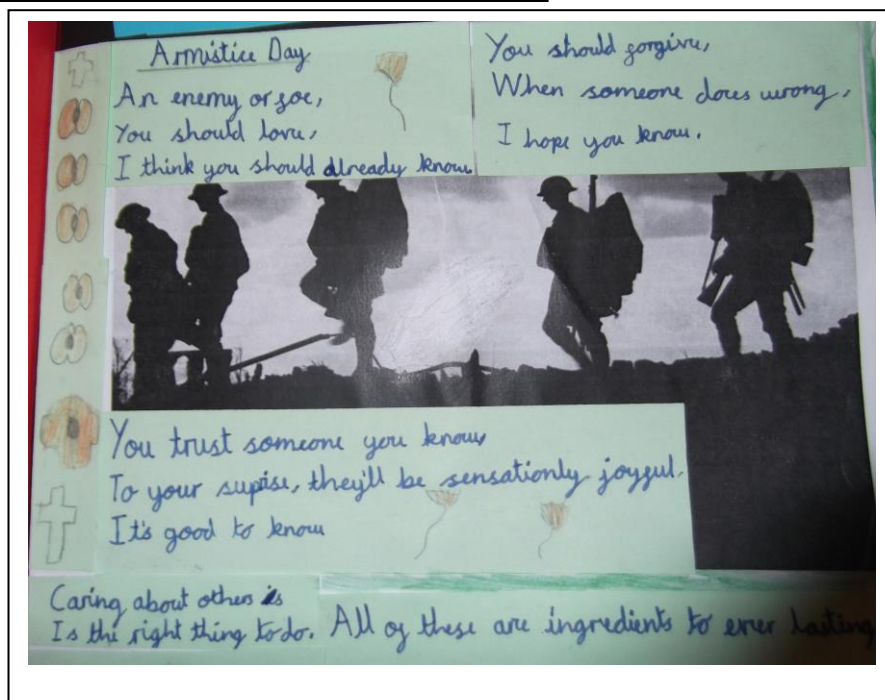 Armistice Day
An enemy or foe,
You should love,
I think you should already know.
You should forgive,
When someone does wrong,
I hope you know.
You trust someone you know,
To your supise, they'll be sensationly joyful.
It's good to know
Caring about others is
Is the right thing to do.
All of these are ingredients to ever lasting